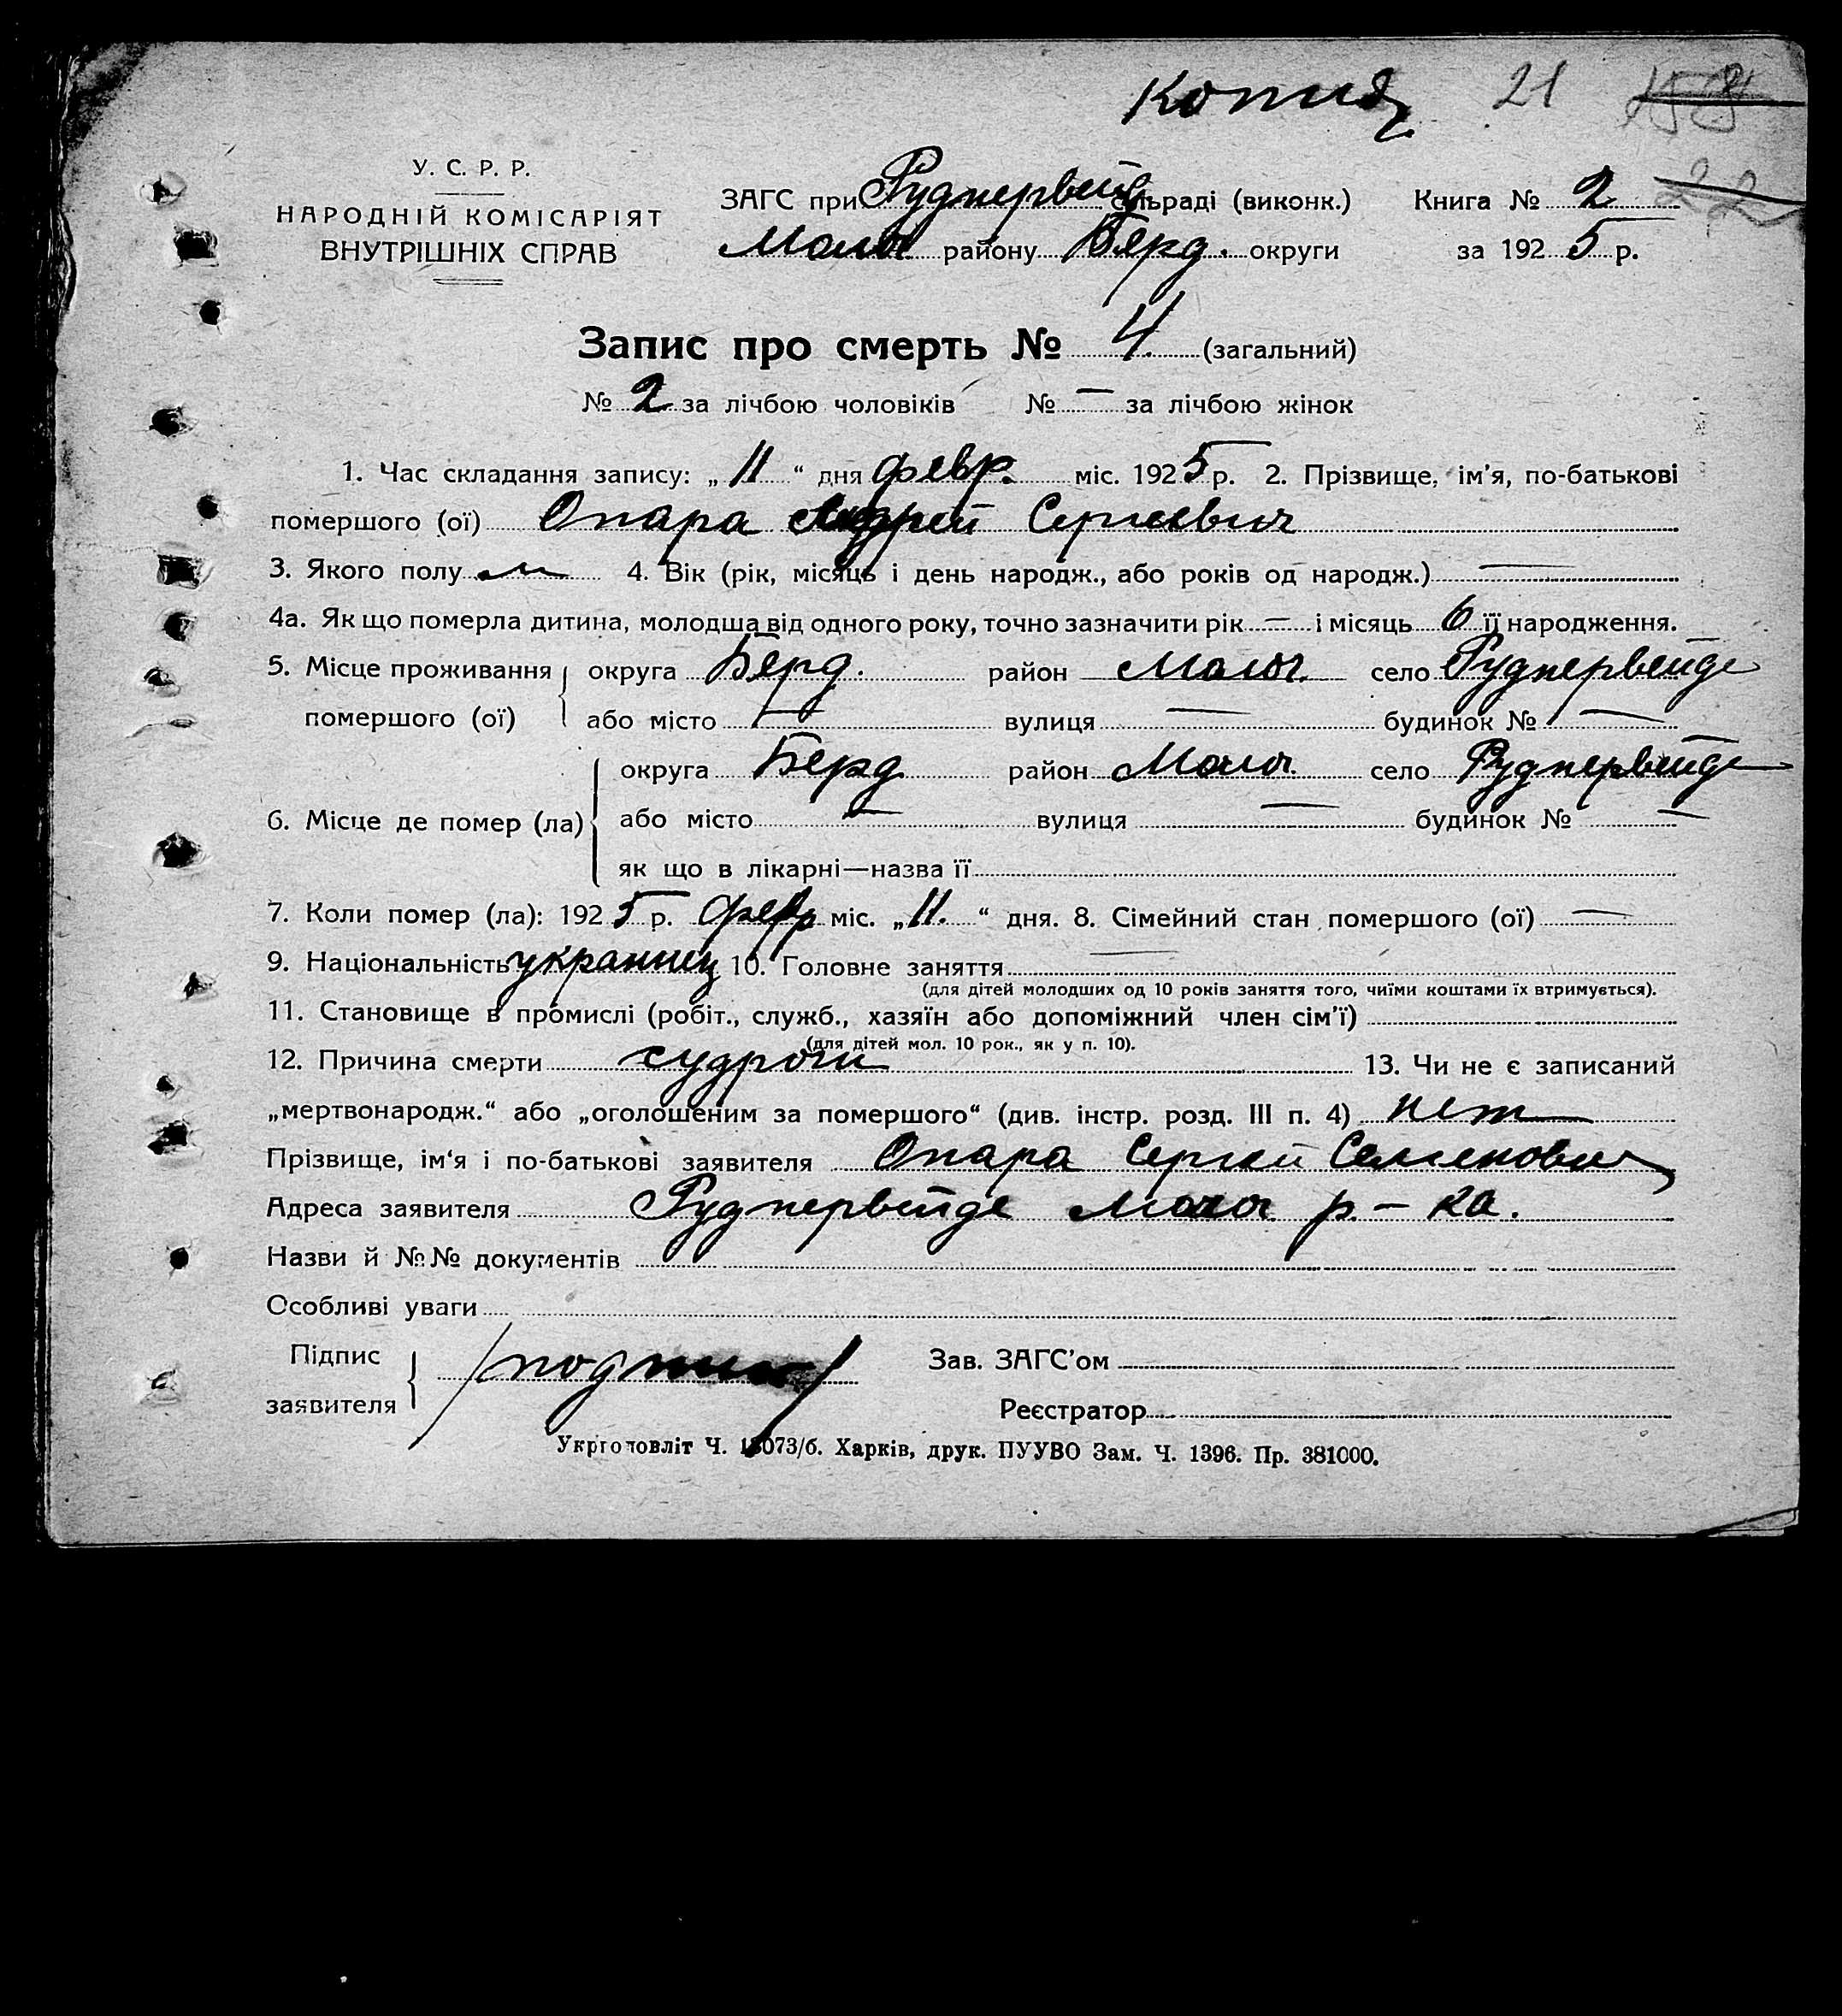 Копия 21
У. С. Р. Р.
НАРОДНІЙ КОМІСАРІЯТ
ВНУТРІШНІХ СПРАВ
ЗАГС при Руднервейд сільраді (виконк.) Книга № 2 22
Молоч району Берд. округи за 1925 р.
Запис про смерть № 4. (загальний)
№ 2 за лічбою чоловіків № — за лічбою жінок
1. Час складання запису: „ 11 “ дня февр. міс. 1925 р. 2. Прізвище, ім’я, по-батькові
помершого (ої) Опара Андрей Сергеевич
3. Якого полу м 4. Вік (рік, місяць і день народж., або років од народж.) —
4а. Як що померла дитина, молодша від одного року, точно зазначити рік — і місяць 6 її народження.
5. Місце проживання округа Берд. район Молоч. село Руднервейде
помершого (ої) або місто — вулиця — будинок № —
округа Берд район Молоч. село Руднервейде
6. Місце де помер (ла) або місто — вулиця — будинок № —
як що в лікарні—назва її
7. Коли помер (ла): 1925 р. февр міс. „ 11. “ дня. 8. Сімейний стан помершого (ої) —
9. Національність украинец 10. Головне заняття —
(для дітей молодших од 10 років заняття того, чиїми коштами їх втримується).
11. Становище в промислі (робіт., служб., хазяїн або допоміжний член сім’ї)
(для дітей мол. 10 рок., як у п. 10).
12. Причина смерти судроги 13. Чи не є записаний
„мертвонародж.“ або „оголошеним за помершого“ (див. інстр. розд. III п. 4) нет
Прізвище, ім‘я і по-батькові заявителя Опара Сергей Семенович
Адреса заявителя Руднервейде Молоч р.-ка.
Назви й №№ документів
Особливі уваги
Підпис
заявителя /подпись/ Зав. ЗАГС’ом
Реєстратор
Укрголовліт Ч. 13073/б. Харків, друк. ПУУВО Зам. Ч. 1396. Пр. 381000.